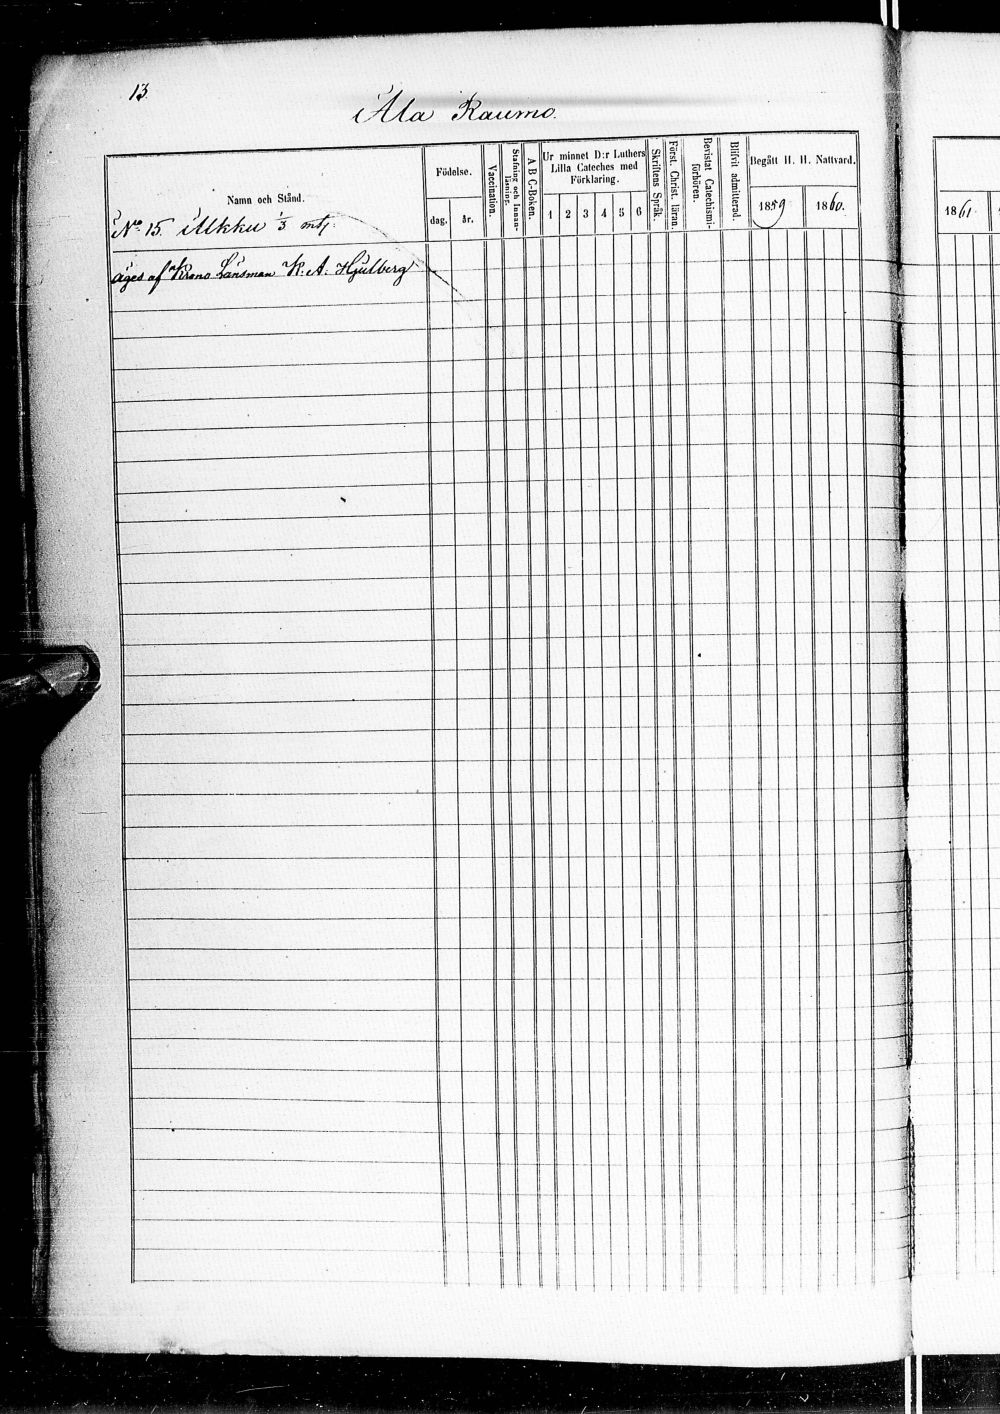 13.
Ala Raumo.
Namn och Stånd.
Födelse.
dag.
år.
Vaccination.
Stafning och Innan-
läsning.
A B C-Boken.
Ur minnet D:r Luthers
Lilla Cateches med
Förklaring.
1 2 3 4 5 6
Skriftens Språk.
Först. Christ. läran.
Bevistat Catechismi-
förhören.
Blifvit admitterad.
Begått H. H. Nattvard.
1859
1860.
1861
No 15 Ukku 1/3 mtl.
äges af Krono Länsman K. A. Hjulberg